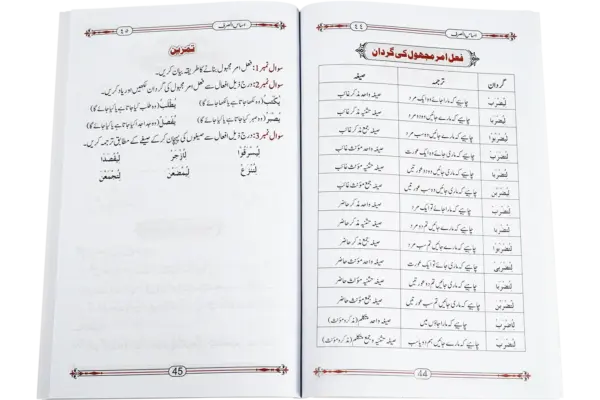 ٤٤ اساس الصرف
فعل امر مجہول کی گردان
گردان ترجمہ صیغہ
لِيُضْرَبْ چاہیے کہ مارا جائے وہ ایک مرد صیغہ واحد مذکر غائب
لِيُضْرَبَا چاہیے کہ مارے جائیں وہ دو مرد صیغہ تثنیہ مذکر غائب
لِيُضْرَبُوْا چاہیے کہ مارے جائیں وہ سب مرد صیغہ جمع مذکر غائب
لِتُضْرَبْ چاہیے کہ ماری جائے وہ ایک عورت صیغہ واحد مؤنث غائب
لِتُضْرَبَا چاہیے کہ ماری جائیں وہ دو عورتیں صیغہ تثنیہ مؤنث غائب
لِيُضْرَبْنَ چاہیے کہ ماری جائیں وہ سب عورتیں صیغہ جمع مؤنث غائب
لِتُضْرَبْ چاہیے کہ مارا جائے تو ایک مرد صیغہ واحد مذکر حاضر
لِتُضْرَبَا چاہیے کہ مارے جائیں تم دو مرد صیغہ تثنیہ مذکر حاضر
لِتُضْرَبُوْا چاہیے کہ مارے جائیں تم سب مرد صیغہ جمع مذکر حاضر
لِتُضْرَبِىْ چاہیے کہ ماری جائے تو ایک عورت صیغہ واحد مؤنث حاضر
لِتُضْرَبَا چاہیے کہ ماری جائیں تم دو عورتیں صیغہ تثنیہ مؤنث حاضر
لِتُضْرَبْنَ چاہیے کہ ماری جائیں تم سب عورتیں صیغہ جمع مؤنث حاضر
لِاُضْرَبْ چاہیے کہ مارا جاؤں میں صیغہ واحد متکلم (مذکر و مؤنث)
لِنُضْرَبْ چاہیے کہ مارے جائیں ہم دو یا سب صیغہ تثنیہ و جمع متکلم (مذکر و مؤنث)
44
اساس الصرف ٤٥
تمرین
سوال نمبر 1: فعل امر مجہول بنانے کا طریقہ بیان کریں۔
سوال نمبر 2: درج ذیل افعال سے فعل امر مجہول کی گردان لکھیں اور یاد کریں۔
يُكْتَبُ (وہ لکھا جاتا ہے یا لکھا جائے گا) يُطْلَبُ (وہ طلب کیا جاتا ہے یا کیا جائے گا)
يُصْبَرُ (وہ صبر کیا جاتا ہے یا کیا جائے گا) يُفْصَلُ (وہ جدا کیا جاتا ہے یا کیا جائے گا)
سوال نمبر 3: درج ذیل افعال سے صیغوں کی پہچان کر کے صیغے کے مطابق ترجمہ کریں۔
لِيُسْرَقُوْا لِاُزْجَرْ لِيُقْصَدَا
لِتُنْزَعْ لِيُمْضَغْنَ لِتُجْمَعْنَ
45